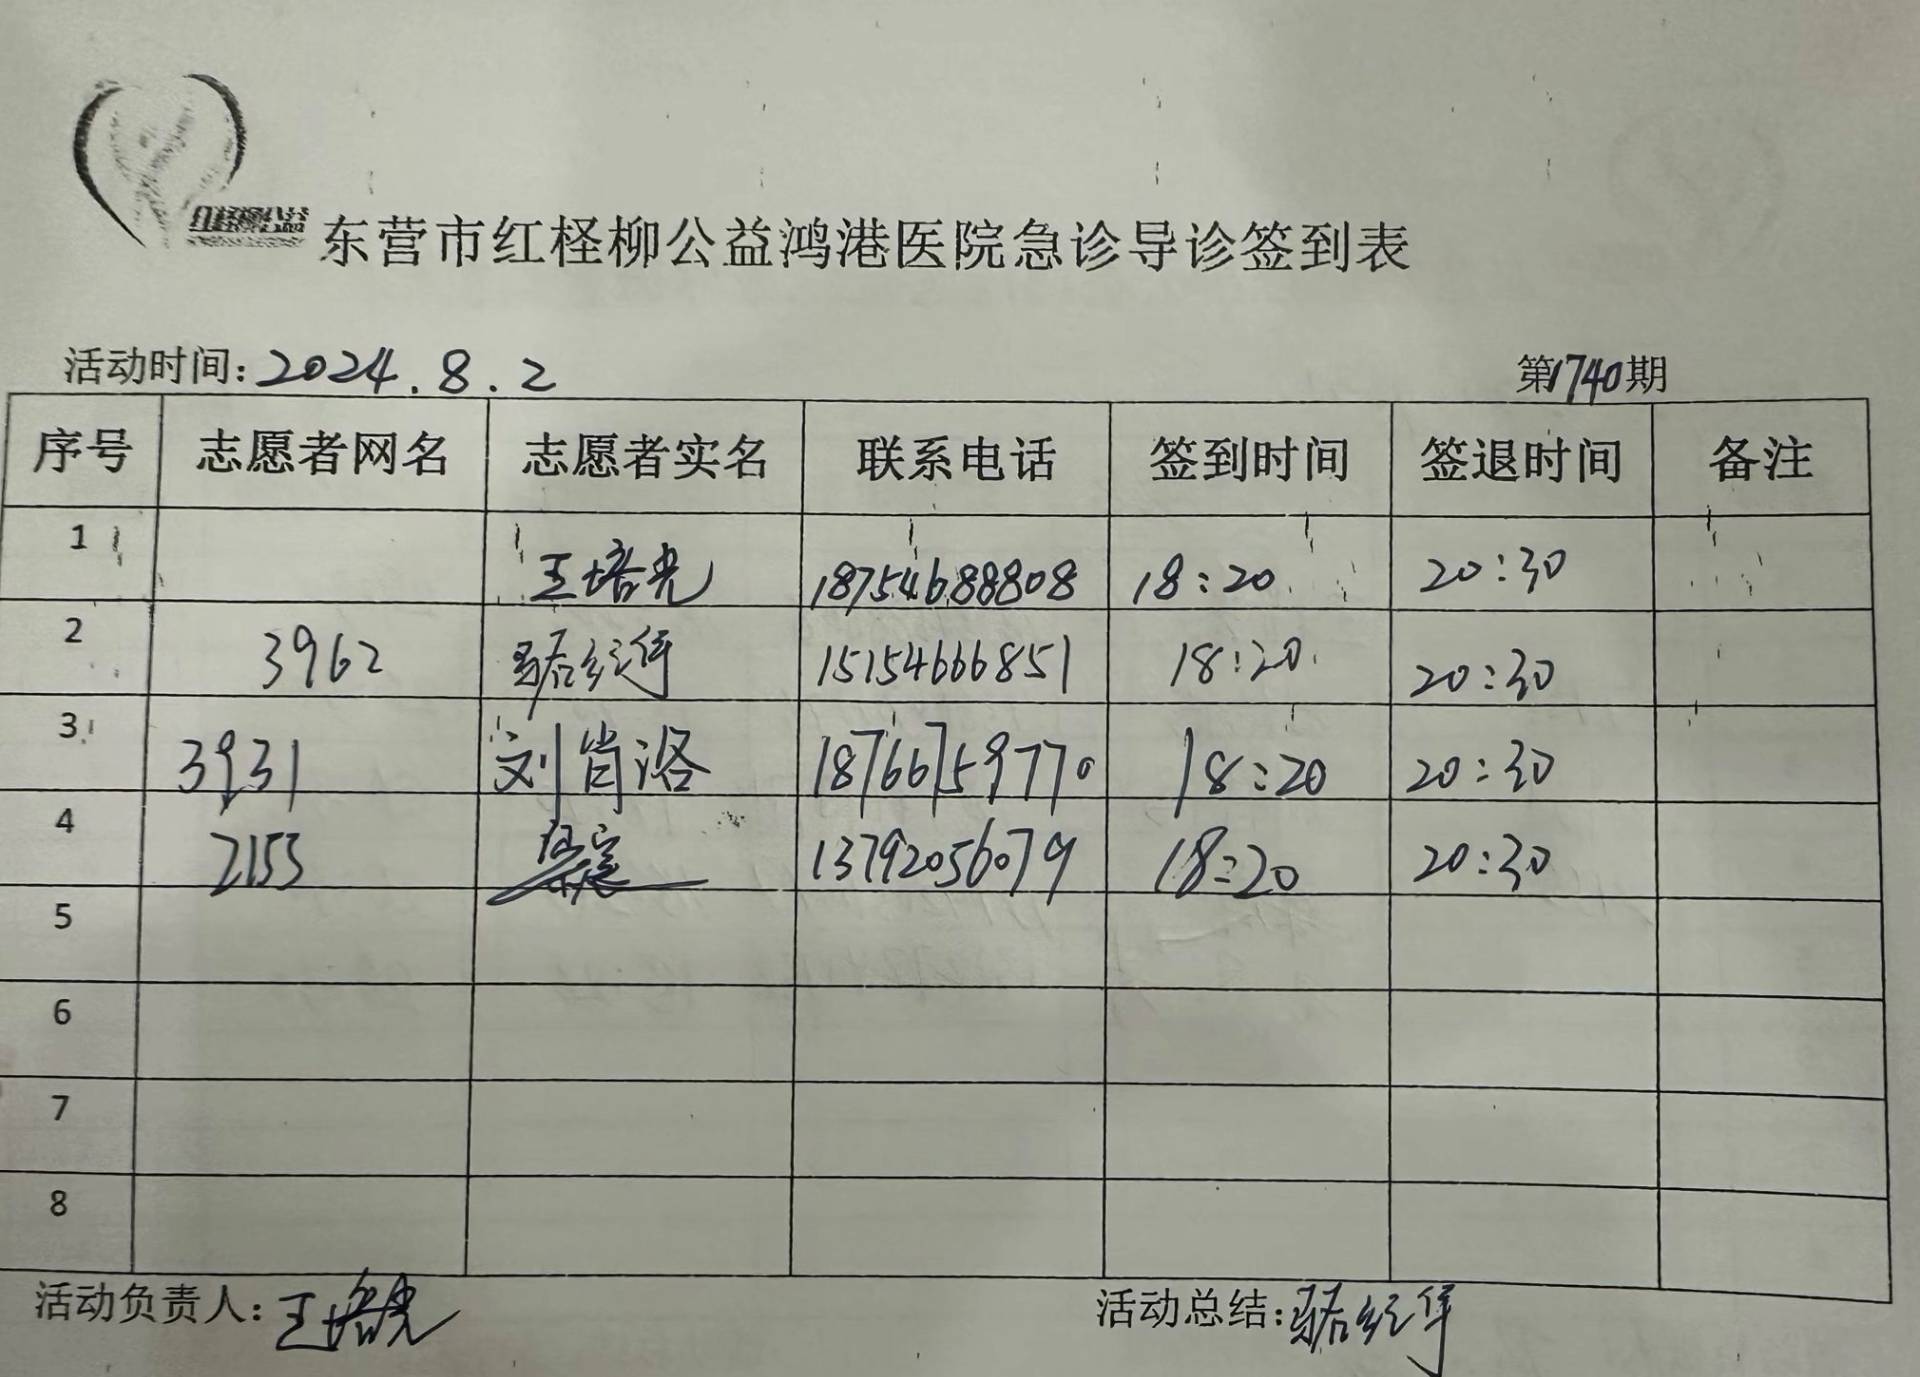 红柽柳公益
东营市红柽柳公益鸿港医院急诊导诊签到表
活动时间:2024.8.2 第1740期
序号 志愿者网名 志愿者实名 联系电话 签到时间 签退时间 备注
1 王培光 18754688808 18:20 20:30
2 3962 15154666851 18:20 20:30
3 3931 刘肖洛 18766759770 18:20 20:30
4 2153 13792056079 18:20 20:30
5
6
7
8
活动负责人:王培光 活动总结: